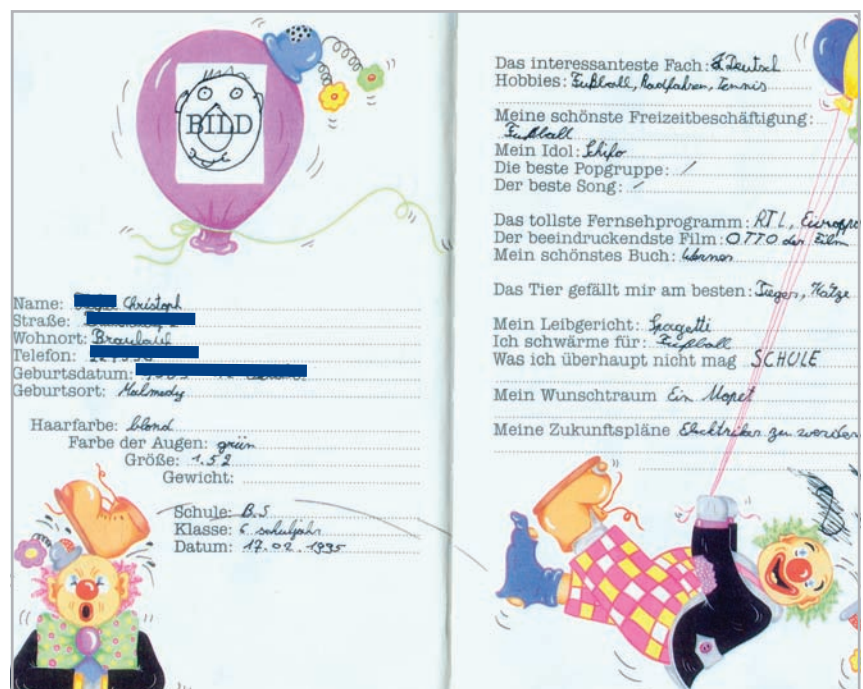 BILD
Name: Christoph
Straße:
Wohnort: Braunlauf
Telefon:
Geburtsdatum:
Geburtsort: Malmedy
Haarfarbe: blond
Farbe der Augen: grün
Größe: 1.52
Gewicht:
Schule: B.S
Klasse: 6 schuljahr
Datum: 17.02.1995
Das interessanteste Fach: Deutsch
Hobbies: Fußball, Radfahren, Tennis
Meine schönste Freizeitbeschäftigung:
Fußball
Mein Idol:
Die beste Popgruppe: /
Der beste Song: /
Das tollste Fernsehprogramm: RTL,
Der beeindruckendste Film: OTTO der Film
Mein schönstes Buch: Werner
Das Tier gefällt mir am besten: Tieger, Katze
Mein Leibgericht: Spagetti
Ich schwärme für: Fußball
Was ich überhaupt nicht mag SCHULE
Mein Wunschtraum Ein Mopet
Meine Zukunftspläne Elecktriker zu werden